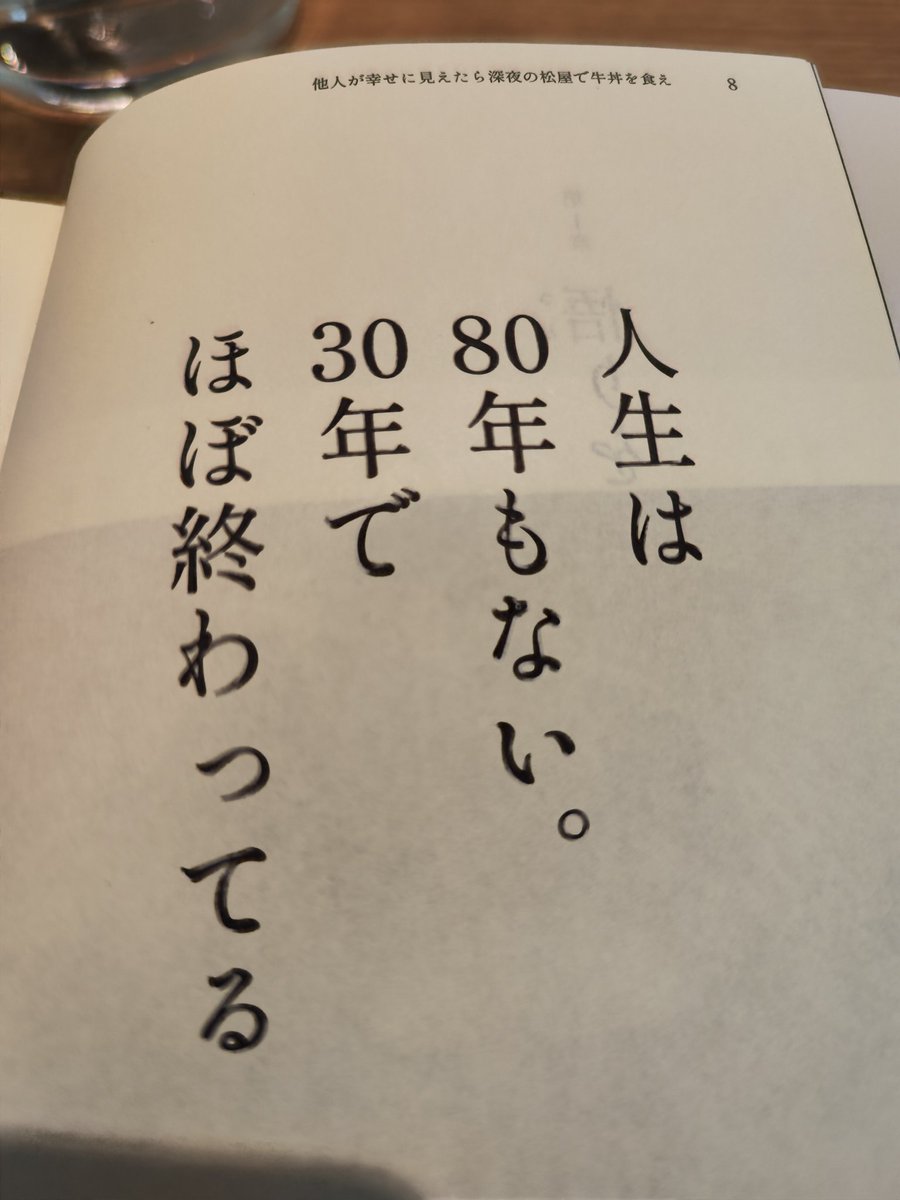 他人が幸せに見えたら深夜の松屋で牛丼を食え
8
人生は
80年もない。
30年で
ほぼ終わってる